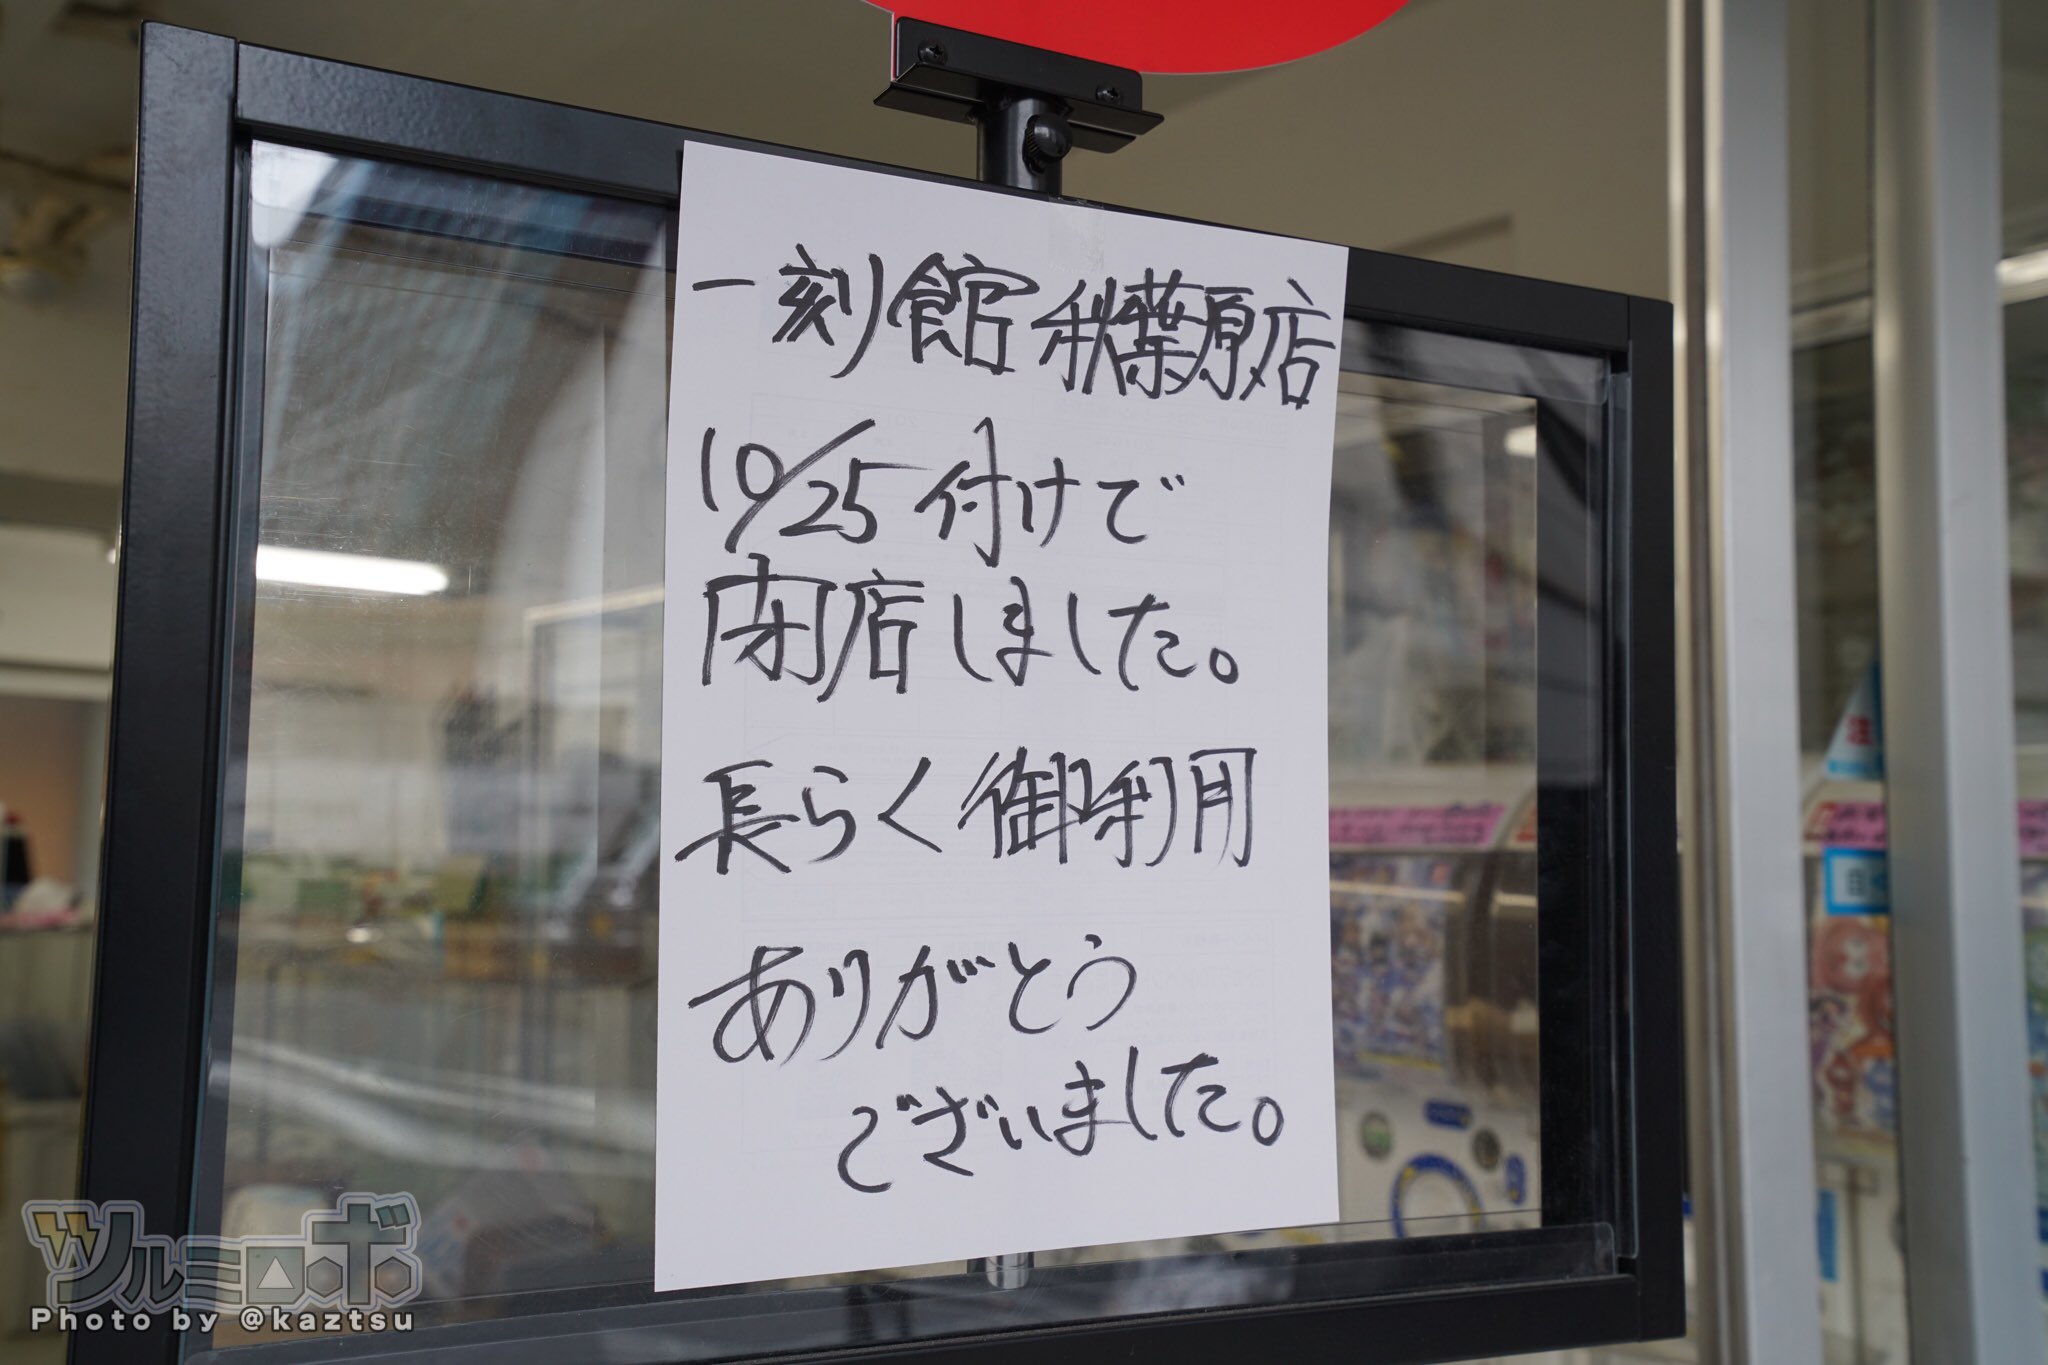 一刻館 秋葉原店
10/25付けで
閉店しました。
長らく御利用
ありがとう
ございました。
ツルミロボ
Photo by @kaztsu